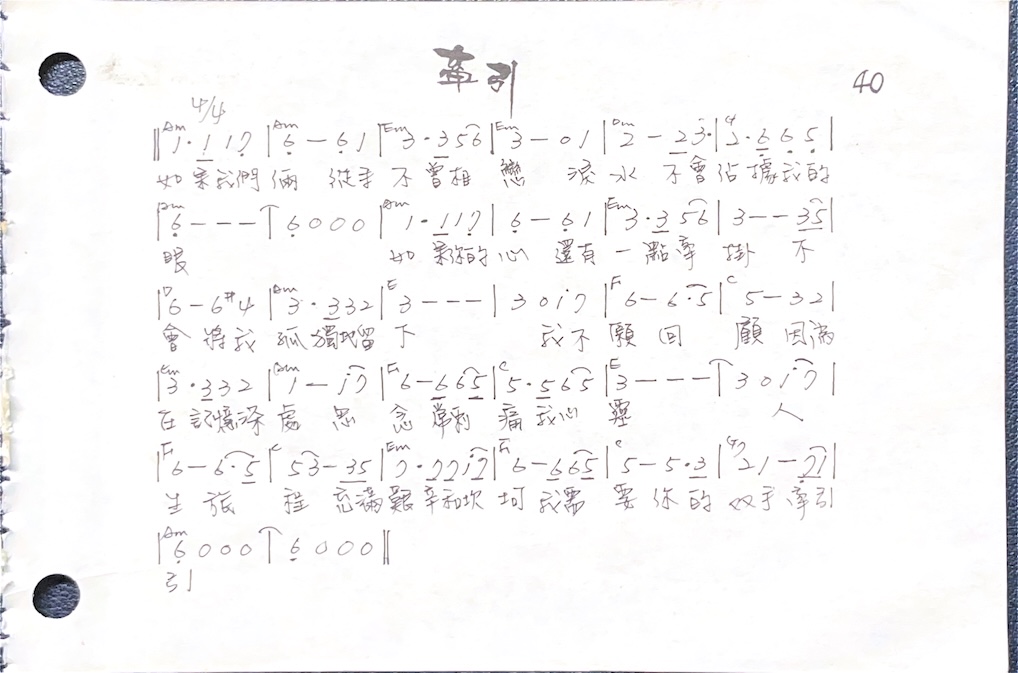 牽引
40
4/4
‖Am 1·1 1 7 |Am 6 — 6 1 |Em 3·3 5 6 |Em 3 — 0 1 |Dm 2 — 2 3 | 2·6 6 5 |
如果我們倆 從來不曾相戀 淚水不會佔據我的
|Am 6 — — — | 6 0 0 0 |Am 1·1 1 7 | 6 — 6 1 |Em 3·3 5 6 | 3 — — 3 5 |
眼 如果你的心還有一點牽掛 不
|D 6 — 6 #4 |Am 3·3 3 2 |E 3 — — — | 3 0 i 7 |F 6 — 6·5 |C 5 — 3 2 |
會將我孤獨地留下 我不願回顧因為
|Em 3·3 3 2 |Am 1 — i 7 |F 6 — 6 6 5 |C 5·5 6 5 |E 3 — — — | 3 0 i 7 |
在記憶深處 思念常刺痛我心靈 人
|F 6 — 6·5 |C 5 3 — 3 5 |Em 7·7 7 i 7 |F 6 — 6 6 5 |C 5 — 5·3 | 2 1 — 7 1 |
生旅程充滿艱辛和坎坷我需要你的双手牽引
|Am 6 0 0 0 | 6 0 0 0 ‖
引